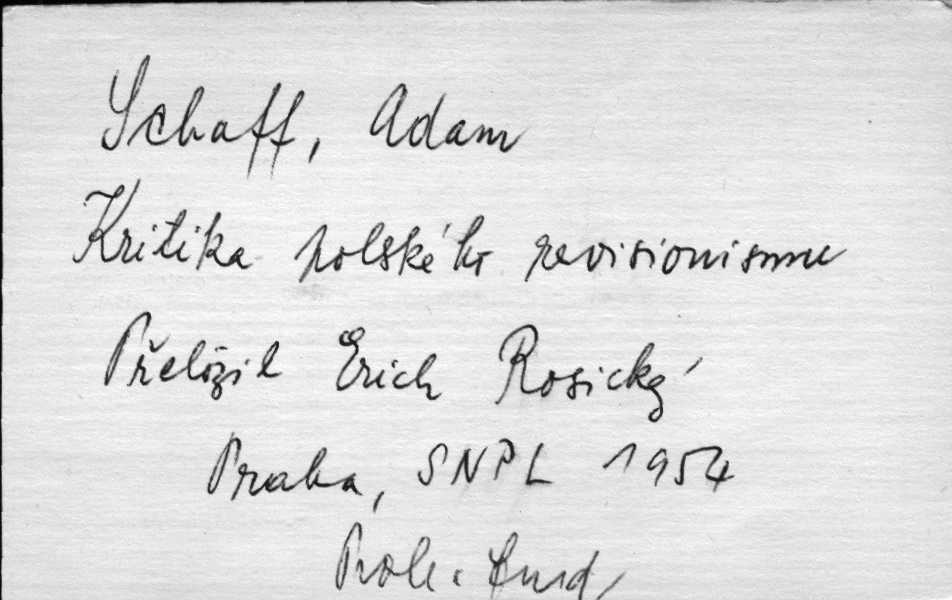 Schaff, Adam
Kritika polského revisionismu
Přeložil Erich Rosický
Praha, SNPL 1954